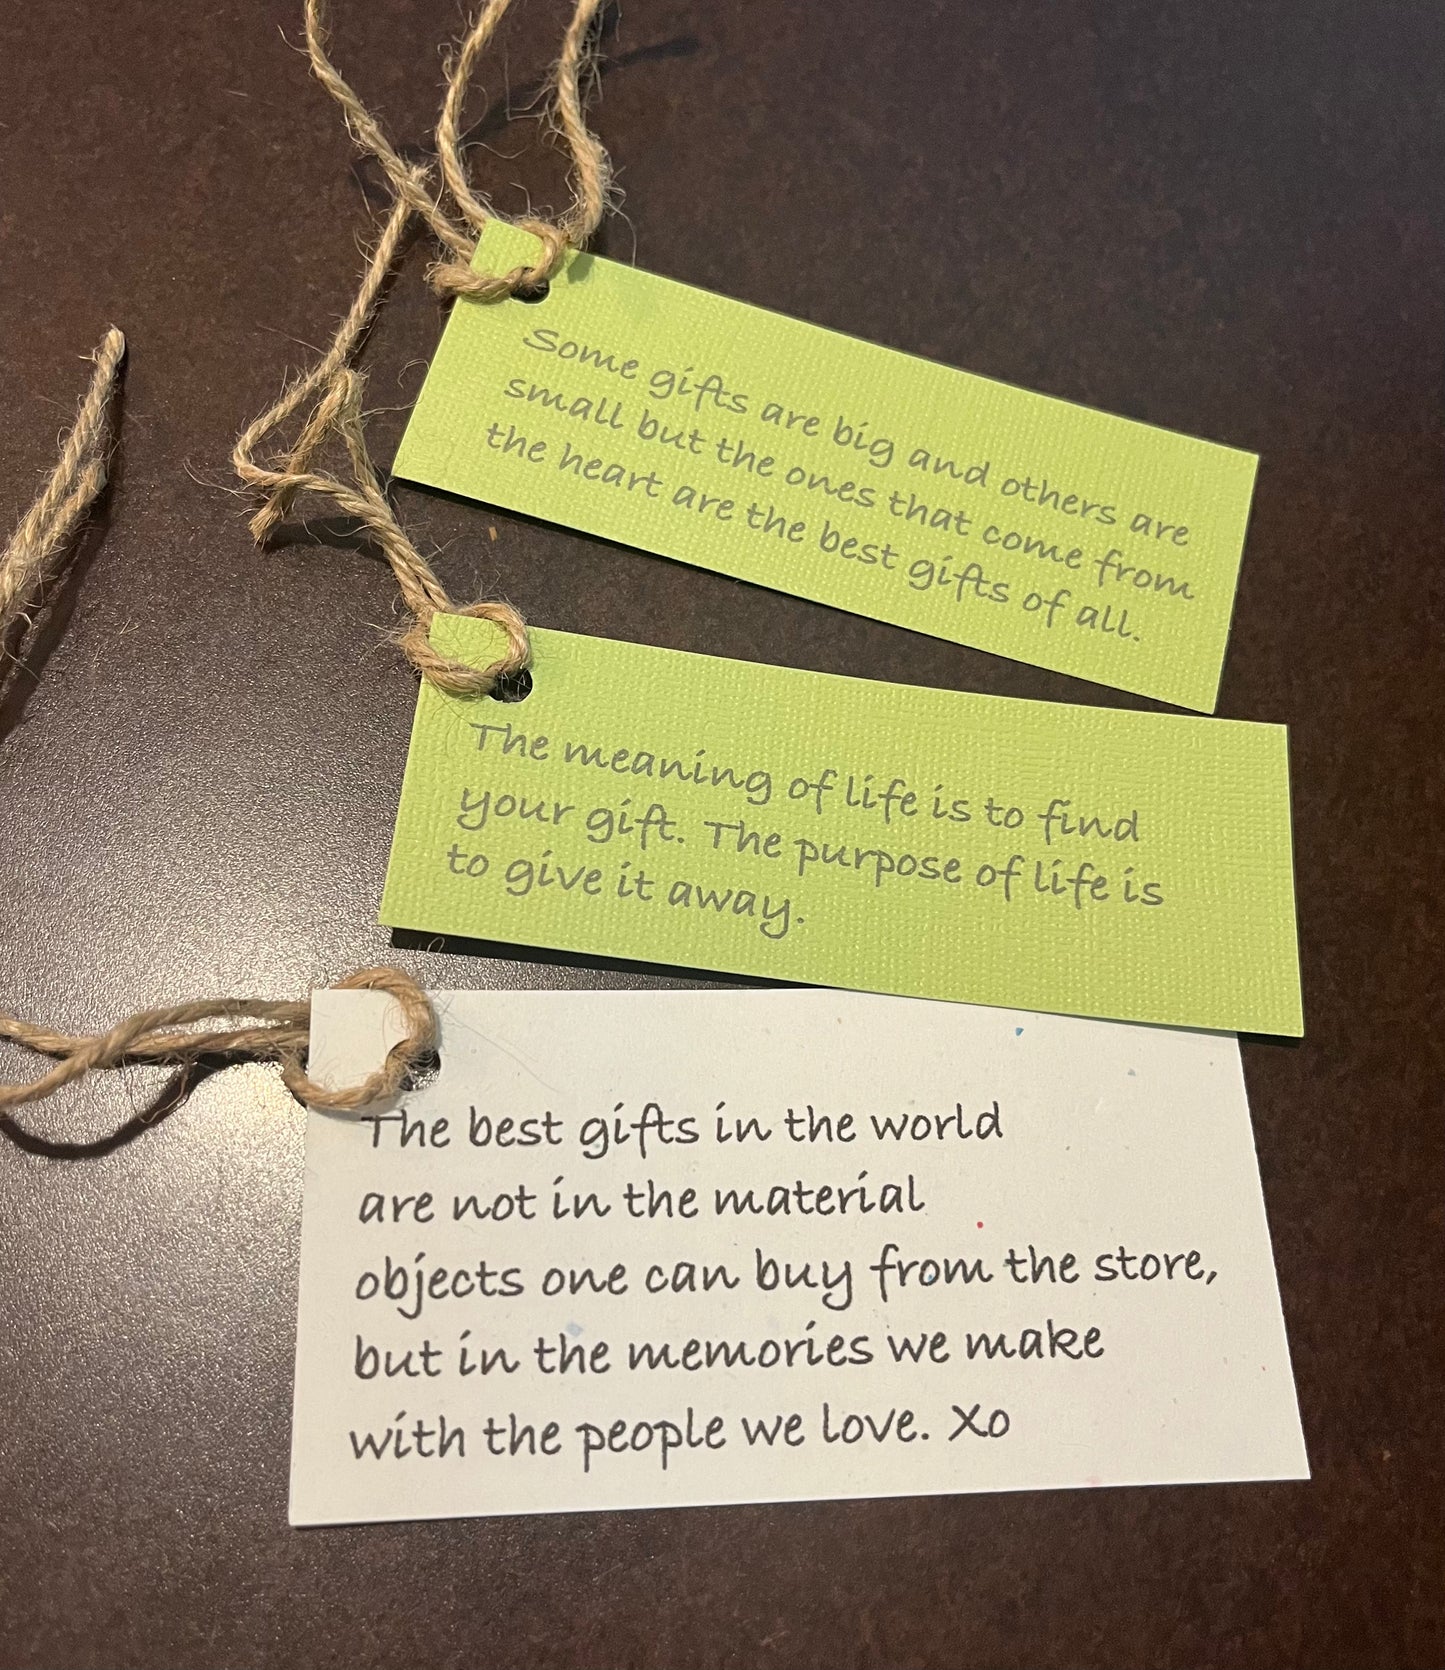 Some gifts are big and others are
small but the ones that come from
the heart are the best gifts of all.
The meaning of life is to find
your gift. The purpose of life is
to give it away.
The best gifts in the world
are not in the material
objects one can buy from the store,
but in the memories we make
with the people we love. Xo